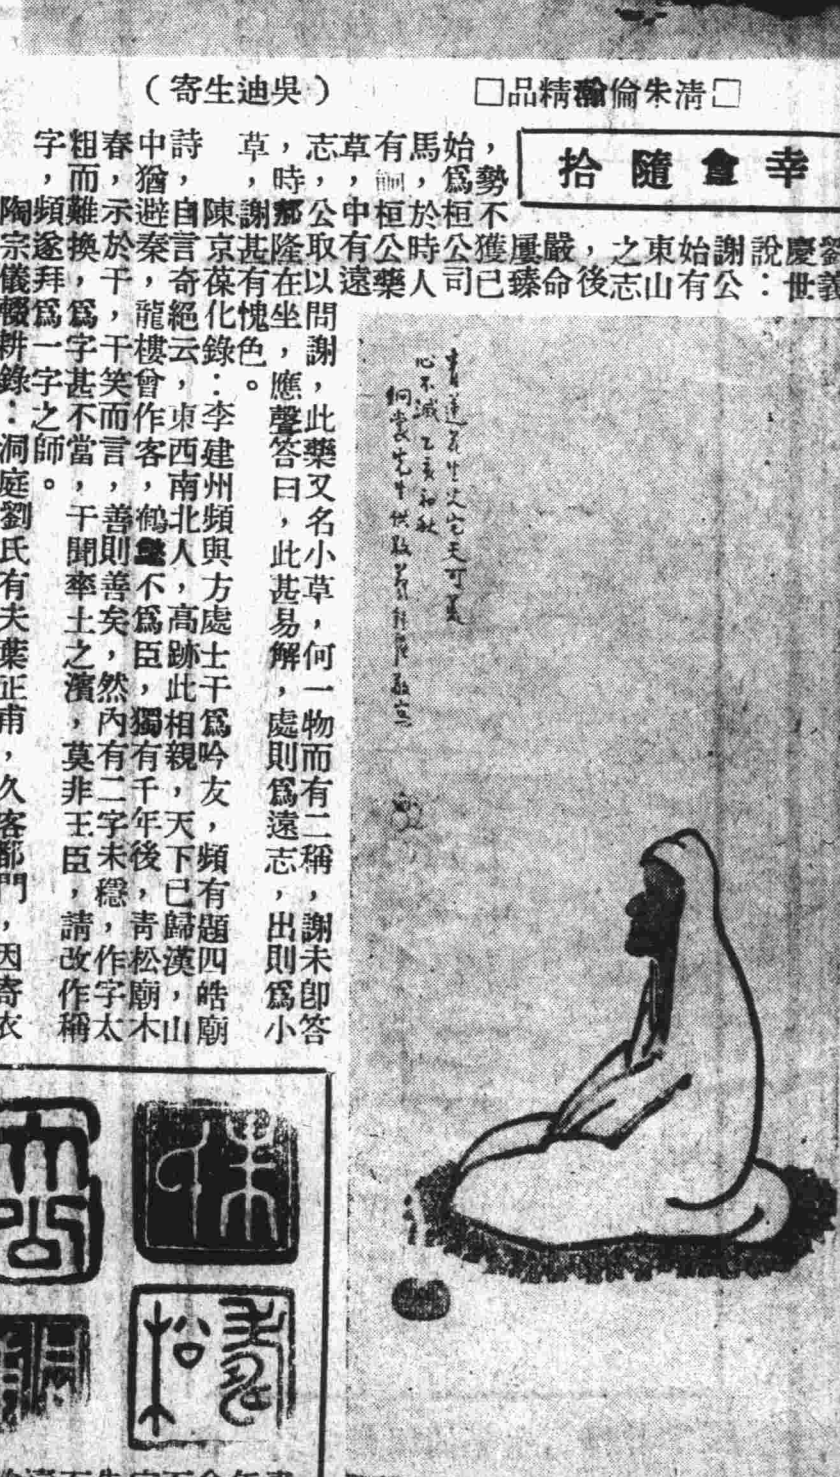 □清朱倫瀚精品□
（吳迪生寄）
幸會隨拾
劉義
慶世
說：
謝公
始有
東山
之志
，後
嚴命
屢臻
，勢不獲已
始爲桓公司
馬，於時人
有餉桓公藥
草，中有遠
志，公取以問謝，此藥又名小草，何一物而有二稱，謝未卽答
，時郝隆在坐，應聲答曰，此甚易解，處則爲遠志，出則爲小
草，謝甚有愧色。
陳京葆化錄：李建州頻與方處士干爲吟友，頻有題四皓廟
詩，自言奇絕云，東西南北人，高跡此相親，天下已歸漢，山
中猶避秦，龍樓曾作客，鶴氅不爲臣，獨有千年後，青松廟木
春，示於干，干笑而言，善則善矣，然內有二字未穩，作字太
粗而難換，爲字甚不當，干聞率土之濱，莫非王臣，請改作稱
字，頻遂拜爲一字之師。
陶宗儀輟耕錄：洞庭劉氏有夫葉正甫，久客都門，因寄衣
心不滅 乙亥初秋